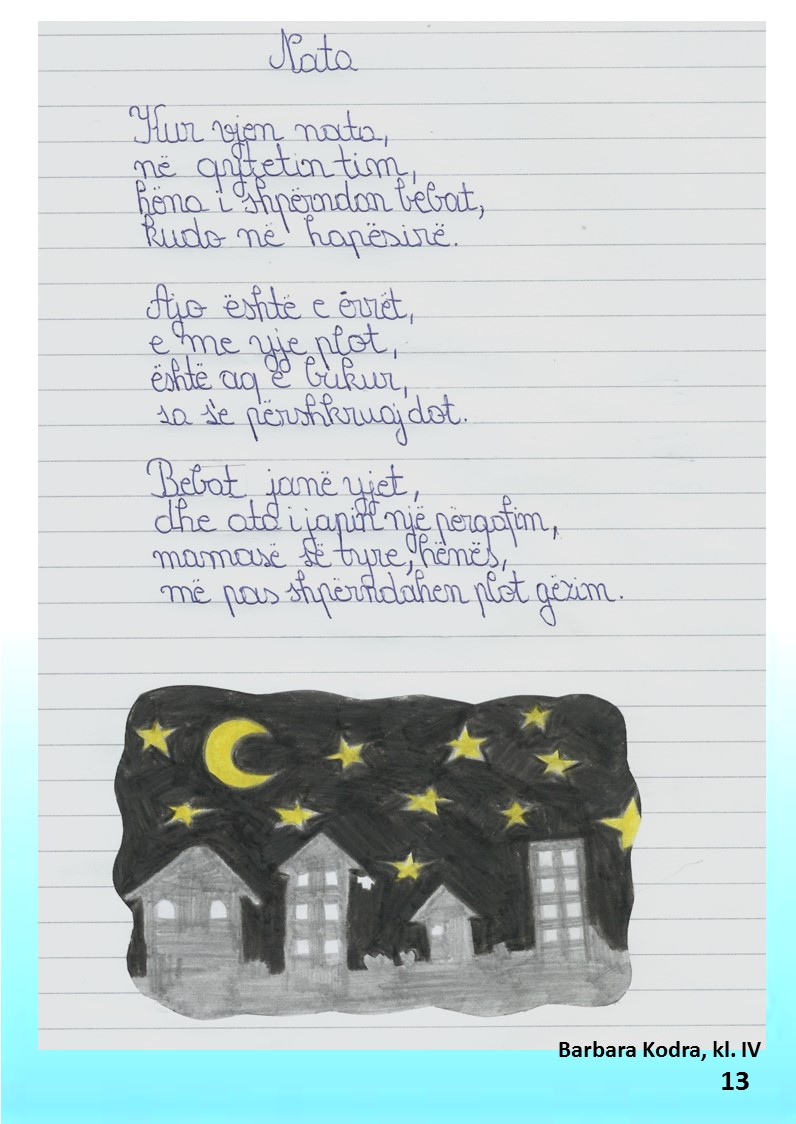 Nata
Kur vjen nata,
në qytetin tim,
hëna i shpërndan bebat,
kudo në hapësirë.
Ajo është e errët,
e me yje plot,
është aq e bukur,
sa s'e përshkruaj dot.
Bebat janë yjet,
dhe ata i japin një përqafim,
mamasë së tyre, hënës,
më pas shpërndahen plot gëzim.
Barbara Kodra, kl. IV
13